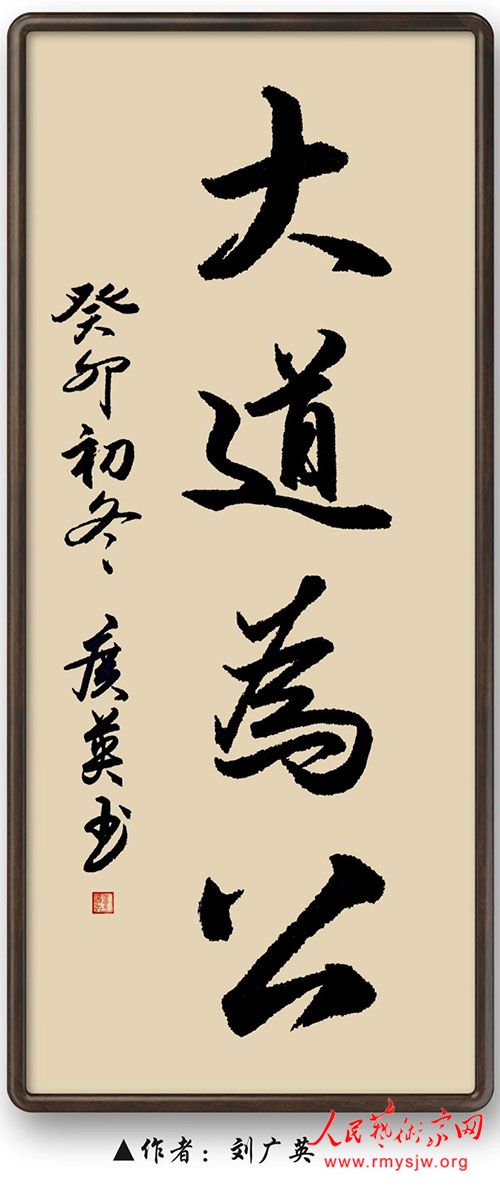 大道為公
癸卯初冬 廣英书
▲作者：刘广英
人民藝術家网
www.rmysjw.org